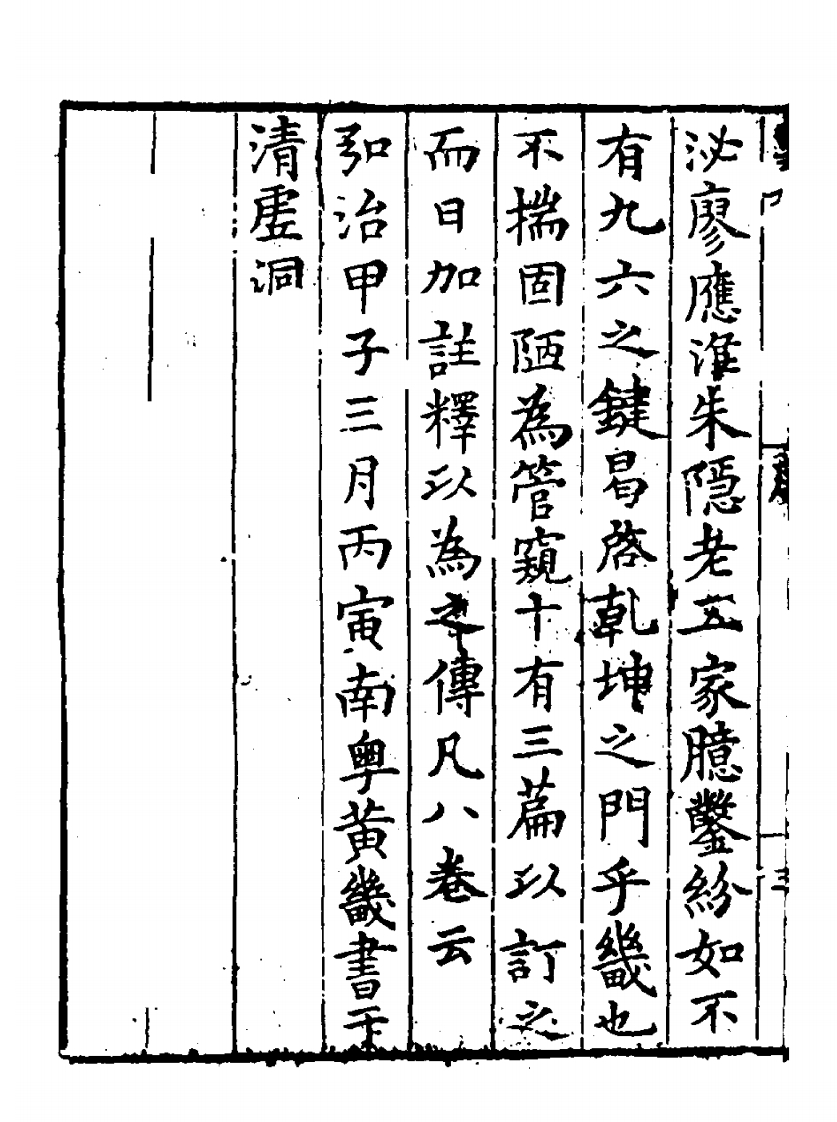 泌廖應淮朱隠老五家臆鑿紛如不
有九六之鍵曷啓乾坤之門乎畿也
不揣固陋為管窺十有三篇以訂之
而日加註釋以為之傳凡八卷云
弘治甲子三月丙寅南粤黄畿書于
清虛洞
三